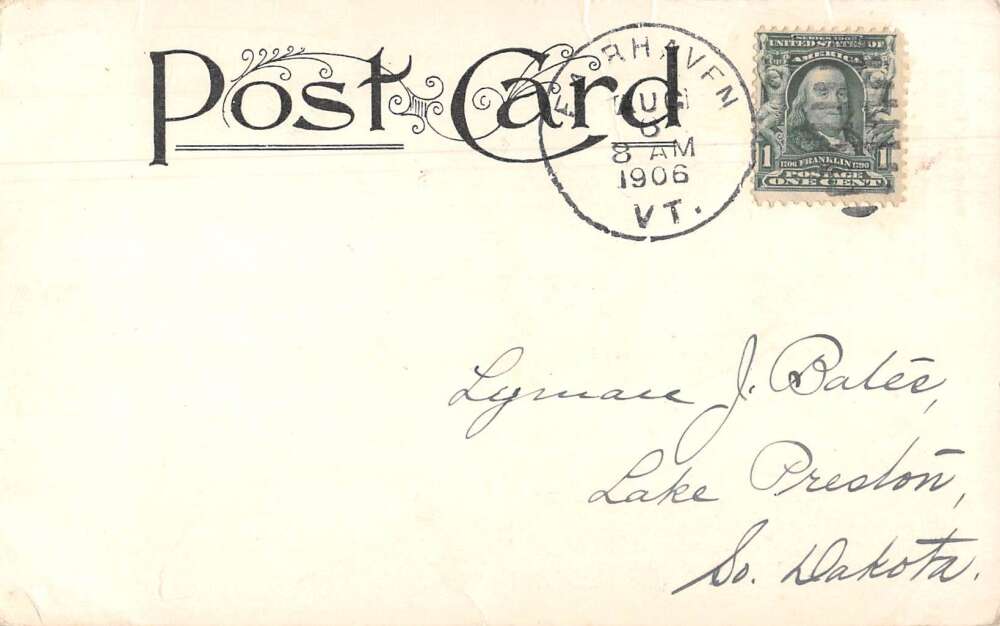 Post Card
FAIRHAVEN
AUG
8 AM
1906
VT.
SERIES 1902
UNITED STATES OF
AMERICA
1 1706 FRANKLIN 1790 1
POSTAGE
ONE CENT
Lyman J. Bates,
Lake Preston,
So. Dakota.